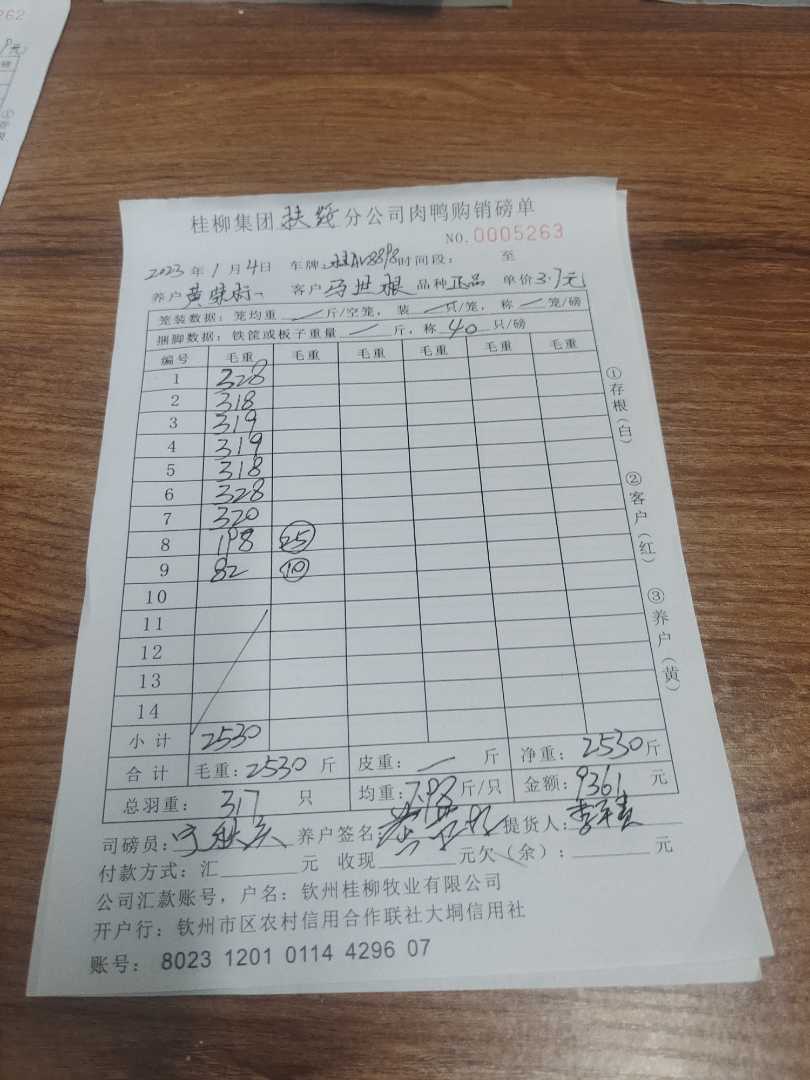 桂柳集团扶绥分公司肉鸭购销磅单
NO.0005263
2023年1月4日 车牌: 时间段: 至
养户黄 客户马世根 品种正品 单价3.7元
笼装数据: 笼均重 斤/空笼, 装 只/笼, 称 笼/磅
捆脚数据: 铁筐或板子重量 斤, 称40只/磅
编号 毛重 毛重 毛重 毛重 毛重 毛重
1 328
2 318
3 319
4 319
5 318
6 328
7 320
8 198 25
9 82 10
10
11
12
13
14
小计 2530
合计 毛重:2530斤 皮重: 斤 净重:2530斤
总羽重: 317 只 均重:7.98斤/只 金额:9361元
司磅员: 养户签名: 提货人:
付款方式: 汇 元 收现 元欠(余): 元
公司汇款账号, 户名: 钦州桂柳牧业有限公司
开户行: 钦州市区农村信用合作联社大垌信用社
账号: 8023 1201 0114 4296 07
①存根(白)
②客户(红)
③养户(黄)